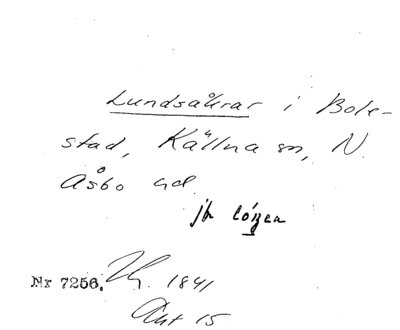 Lundsåkrar i Bole-
stad, Källna sn, N.
Åsbo hd
jfr
Nr 7256. 1841
Akt 15